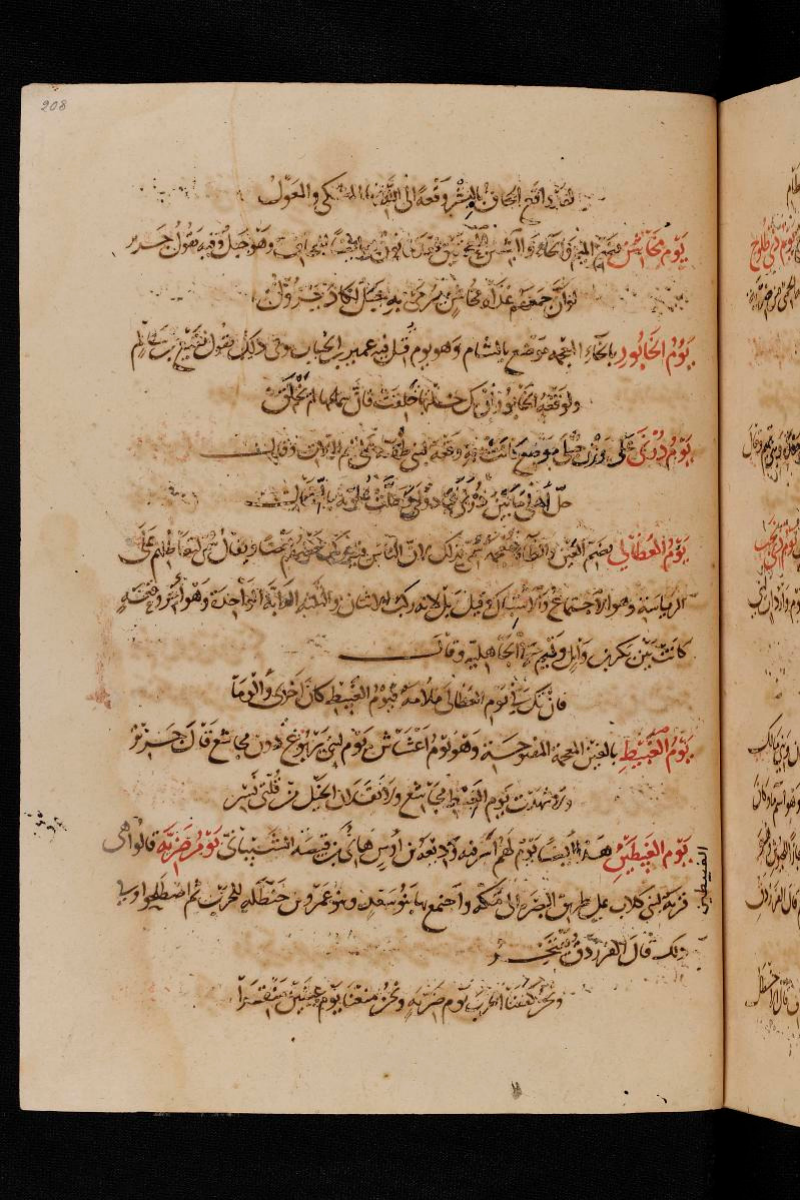 208
لقد اوقع الجحاف بالبشر وقعة الى الله منها المشتكى والمعول
يوم مخاشن بضم الميم والخاء والشين وهو جبل وفيه يقول جرير
لو ان جمعهم غداة مخاشن يرمى به جبل لكاد يزول
يوم الخابور بالخاء المعجمة موضع بالشام وهو يوم قتل فيه عمير بن الحباب وفى ذلك يقول نفيع بن سالم
ولو قعة الخابور ان تك خلتها خلقت فان سماعها لم يخلق
يوم درنى على وزن حبلى موضع كانت به وقعة لبنى طهية على تيم اللات وقال
حل اهلى ما بين درنى فبادولى وحلت علوية بالسخال
يوم العظالى بضم العين والظاء معجمة سمى بذلك لان الناس فيه ركب بعضهم بعضا ويقال بل لتعاظلهم على
الرياسة وهو الاجتماع والاشتباك وقيل بل لانه ركب الاثنان والثلاثة الدابة الواحدة وهو اخر وقعة
كانت بين بكر بن وائل وتميم فى الجاهلية وقال
فان تك فى يوم العظالى ملامة فيوم الغبيط كان اخزى والوما
يوم الغبيط بالغين المعجمة المفتوحة وهو يوم اعشاش يوم لبنى يربوع دون مجاشع قال جرير
ولا شهدت يوم الغبيط مجاشع ولا نقلان الخيل من قلتى نسر
يوم الغبيطين هذا ايضا يوم لهم اسر فيه وديعة بن اوس هانئ بن قبيصة الشيبانى يوم ضرية قالوا هى
الغبيطين
قرية لبنى كلاب على طريق البصرة الى مكة واجتمع بها بنو سعد وبنو عمرو بن حنظلة للحرب ثم اصطلحوا وفى
ذلك قال الفرزدق يفتخر
ونحن كففنا الحرب يوم ضرية ونحن منعنا يوم عينين منقرا